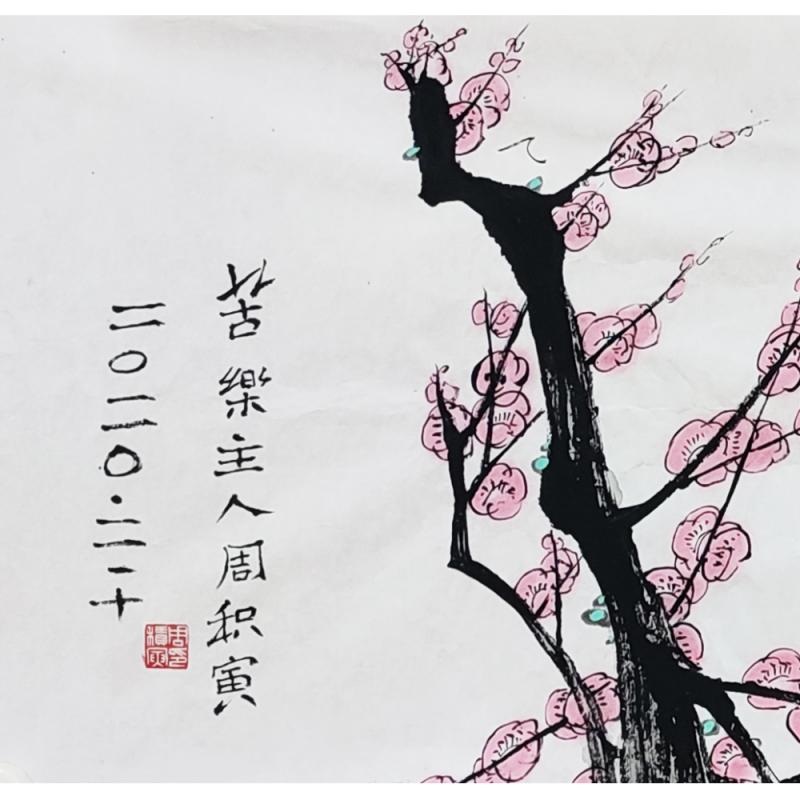 苦樂主人周积寅
二〇二〇·二一十
周印
積寅